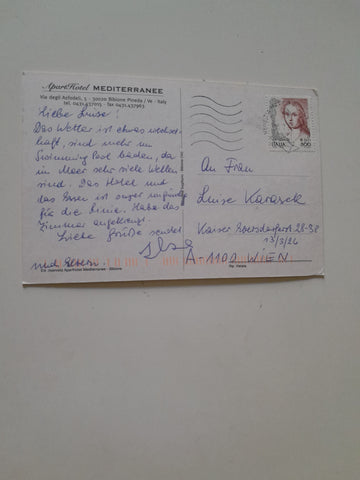 ApartHotel MEDITERRANEE
Via degli Asfodeli, 5 - 30020 Bibione Pineda / Ve - Italy
tel. 0431.437015 - fax 0431.437963
Liebe Luise!
Das Wetter ist etwas wechsel
haft, sind mehr im
Swimming Pool baden, da
im Meer sehr viele Wellen
sind. Das Hotel und
das Essen ist super
für die Linie. Habe das
Zimmer
Liebe Grüße sendet
Ilse
und Eltern.
Ed. riservata Aparthotel Mediterranee - Bibione
ITALIA
800
An Frau
Luise Karasek
Kaiser Ebersdorferstr 28-38
13/3/26
A-1100 WIEN